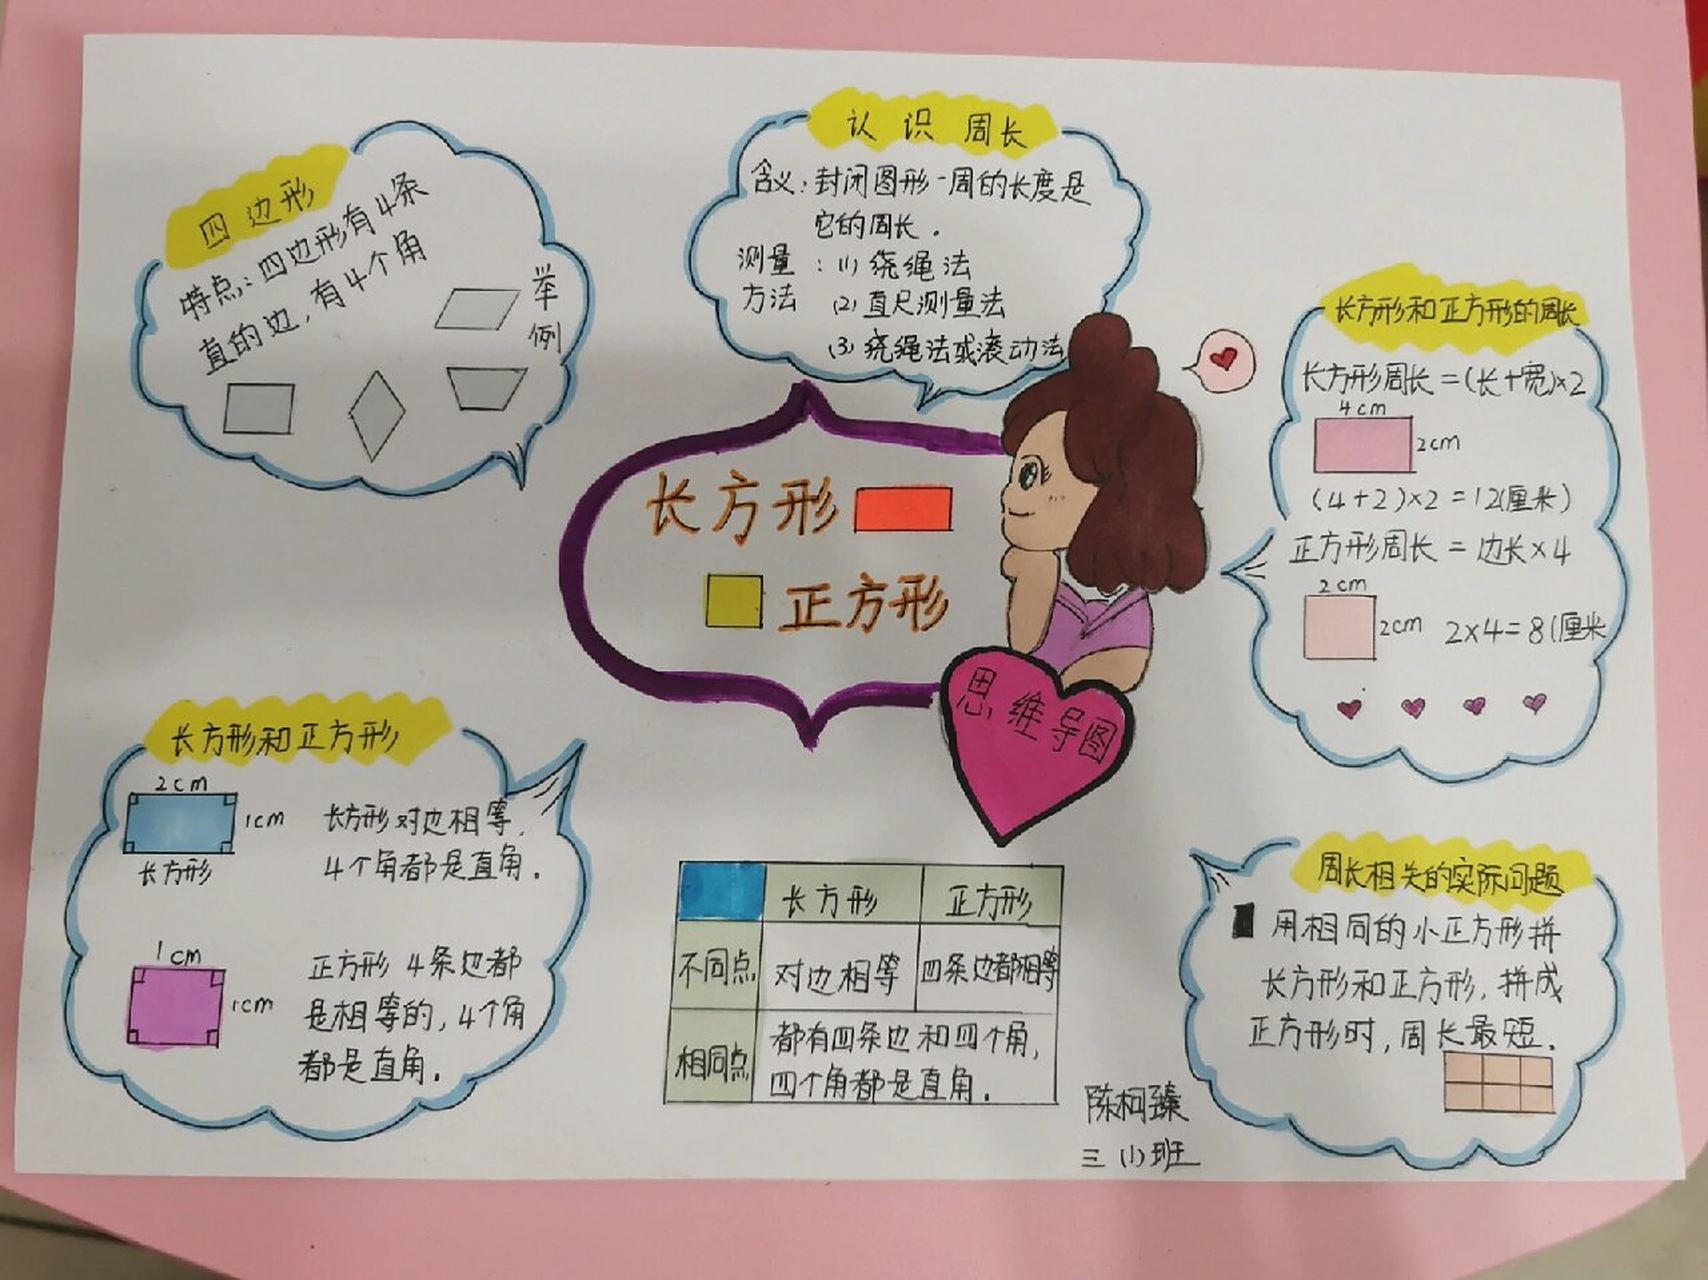 四边形
特点：四边形有4条
直的边，有4个角
举
例
认识周长
含义：封闭图形一周的长度是
它的周长.
测量
方法
：(1) 绕绳法
(2) 直尺测量法
(3) 绕绳法或滚动法
长方形和正方形的周长
长方形周长=(长+宽)×2
4cm
2cm
(4+2)×2=12(厘米)
正方形周长=边长×4
2cm
2cm
2×4=8(厘米
长方形
正方形
思维导图
长方形和正方形
2cm
1cm
长方形
长方形对边相等，
4个角都是直角.
1cm
1cm
正方形4条边都
是相等的,4个角
都是直角.
长方形 正方形
不同点 对边相等 四条边都相等
相同点 都有四条边和四个角,
四个角都是直角.
周长相关的实际问题
用相同的小正方形拼
长方形和正方形,拼成
正方形时,周长最短.
陈柯臻
三(1)班